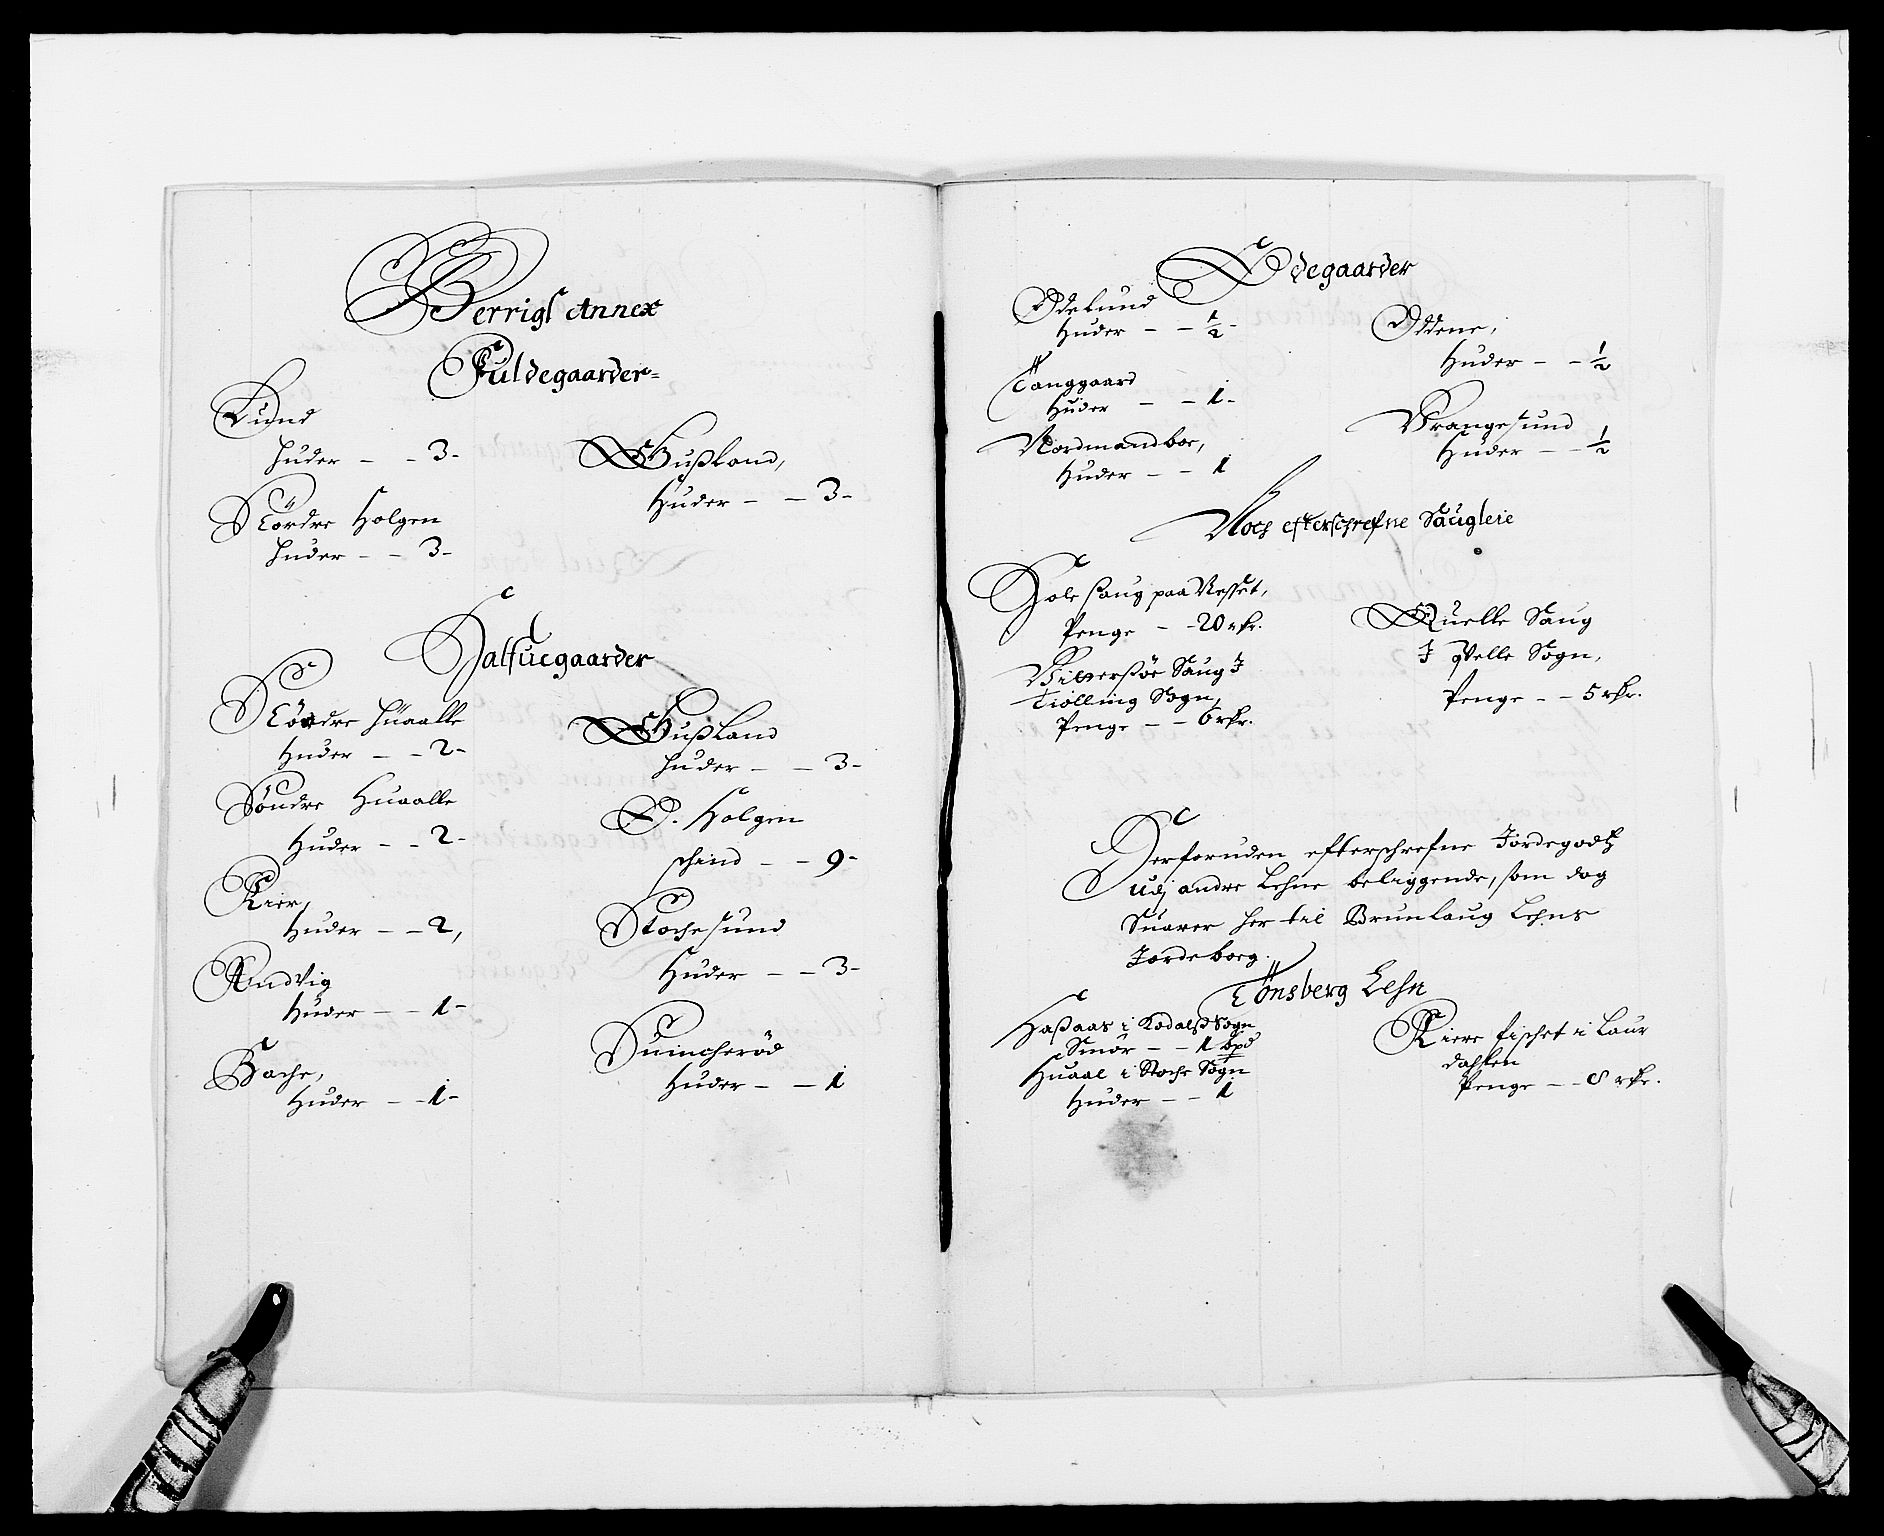 Berrigs Annex
Fuldegaarder=
Lund
Huder – – 3–
Nördre Holgen
Huder – – 3–
Hußland,
Huder – – 3–
Halfuegaarder
Nördre Huaalle
Huder – – 2–
Söndre Huaalle
Huder – – 2–
Kier,
Huder – – 2,
Rndvig
Huder – – 1–
Bache,
Huder – – 1–
Hußland
Huder – – 3–
S. Holgen
schind – – 9–
Stochesund
Huder – – 3–
Duincheröd
Huder – – 1
Ödegaarder
Ödelund
Huder – – ½–
Tanggaard
Huder – – 1–
Nordmandboe,
Huder – – 1
Oddene,
Huder – – ½
Vrangesund
Huder – – ½
Noch efterschrefne Saugleie
Hole saug paa Nesset,
Penge – – 20 rkr.
Vilversöe Saug I
Tiölling Sogn,
Penge – – 6 rkr.
Quelle Saug
I qvelle Sogn,
Penge – – 5 rkr.
Derforuden efterschrefne Jordegodtz
udj andre Lehne beliggende, som dog
Suarer her til Brunlaug Lehns
Jordeborg.
Tönsberg Lehn
Haßaas i Kodalß Sogn
Smör – – 1 bpd
Huaal i Stoche Sogn
Huder – – 1
Kiere fischet i Laur
dahlen
Penge – – 8 rkr.